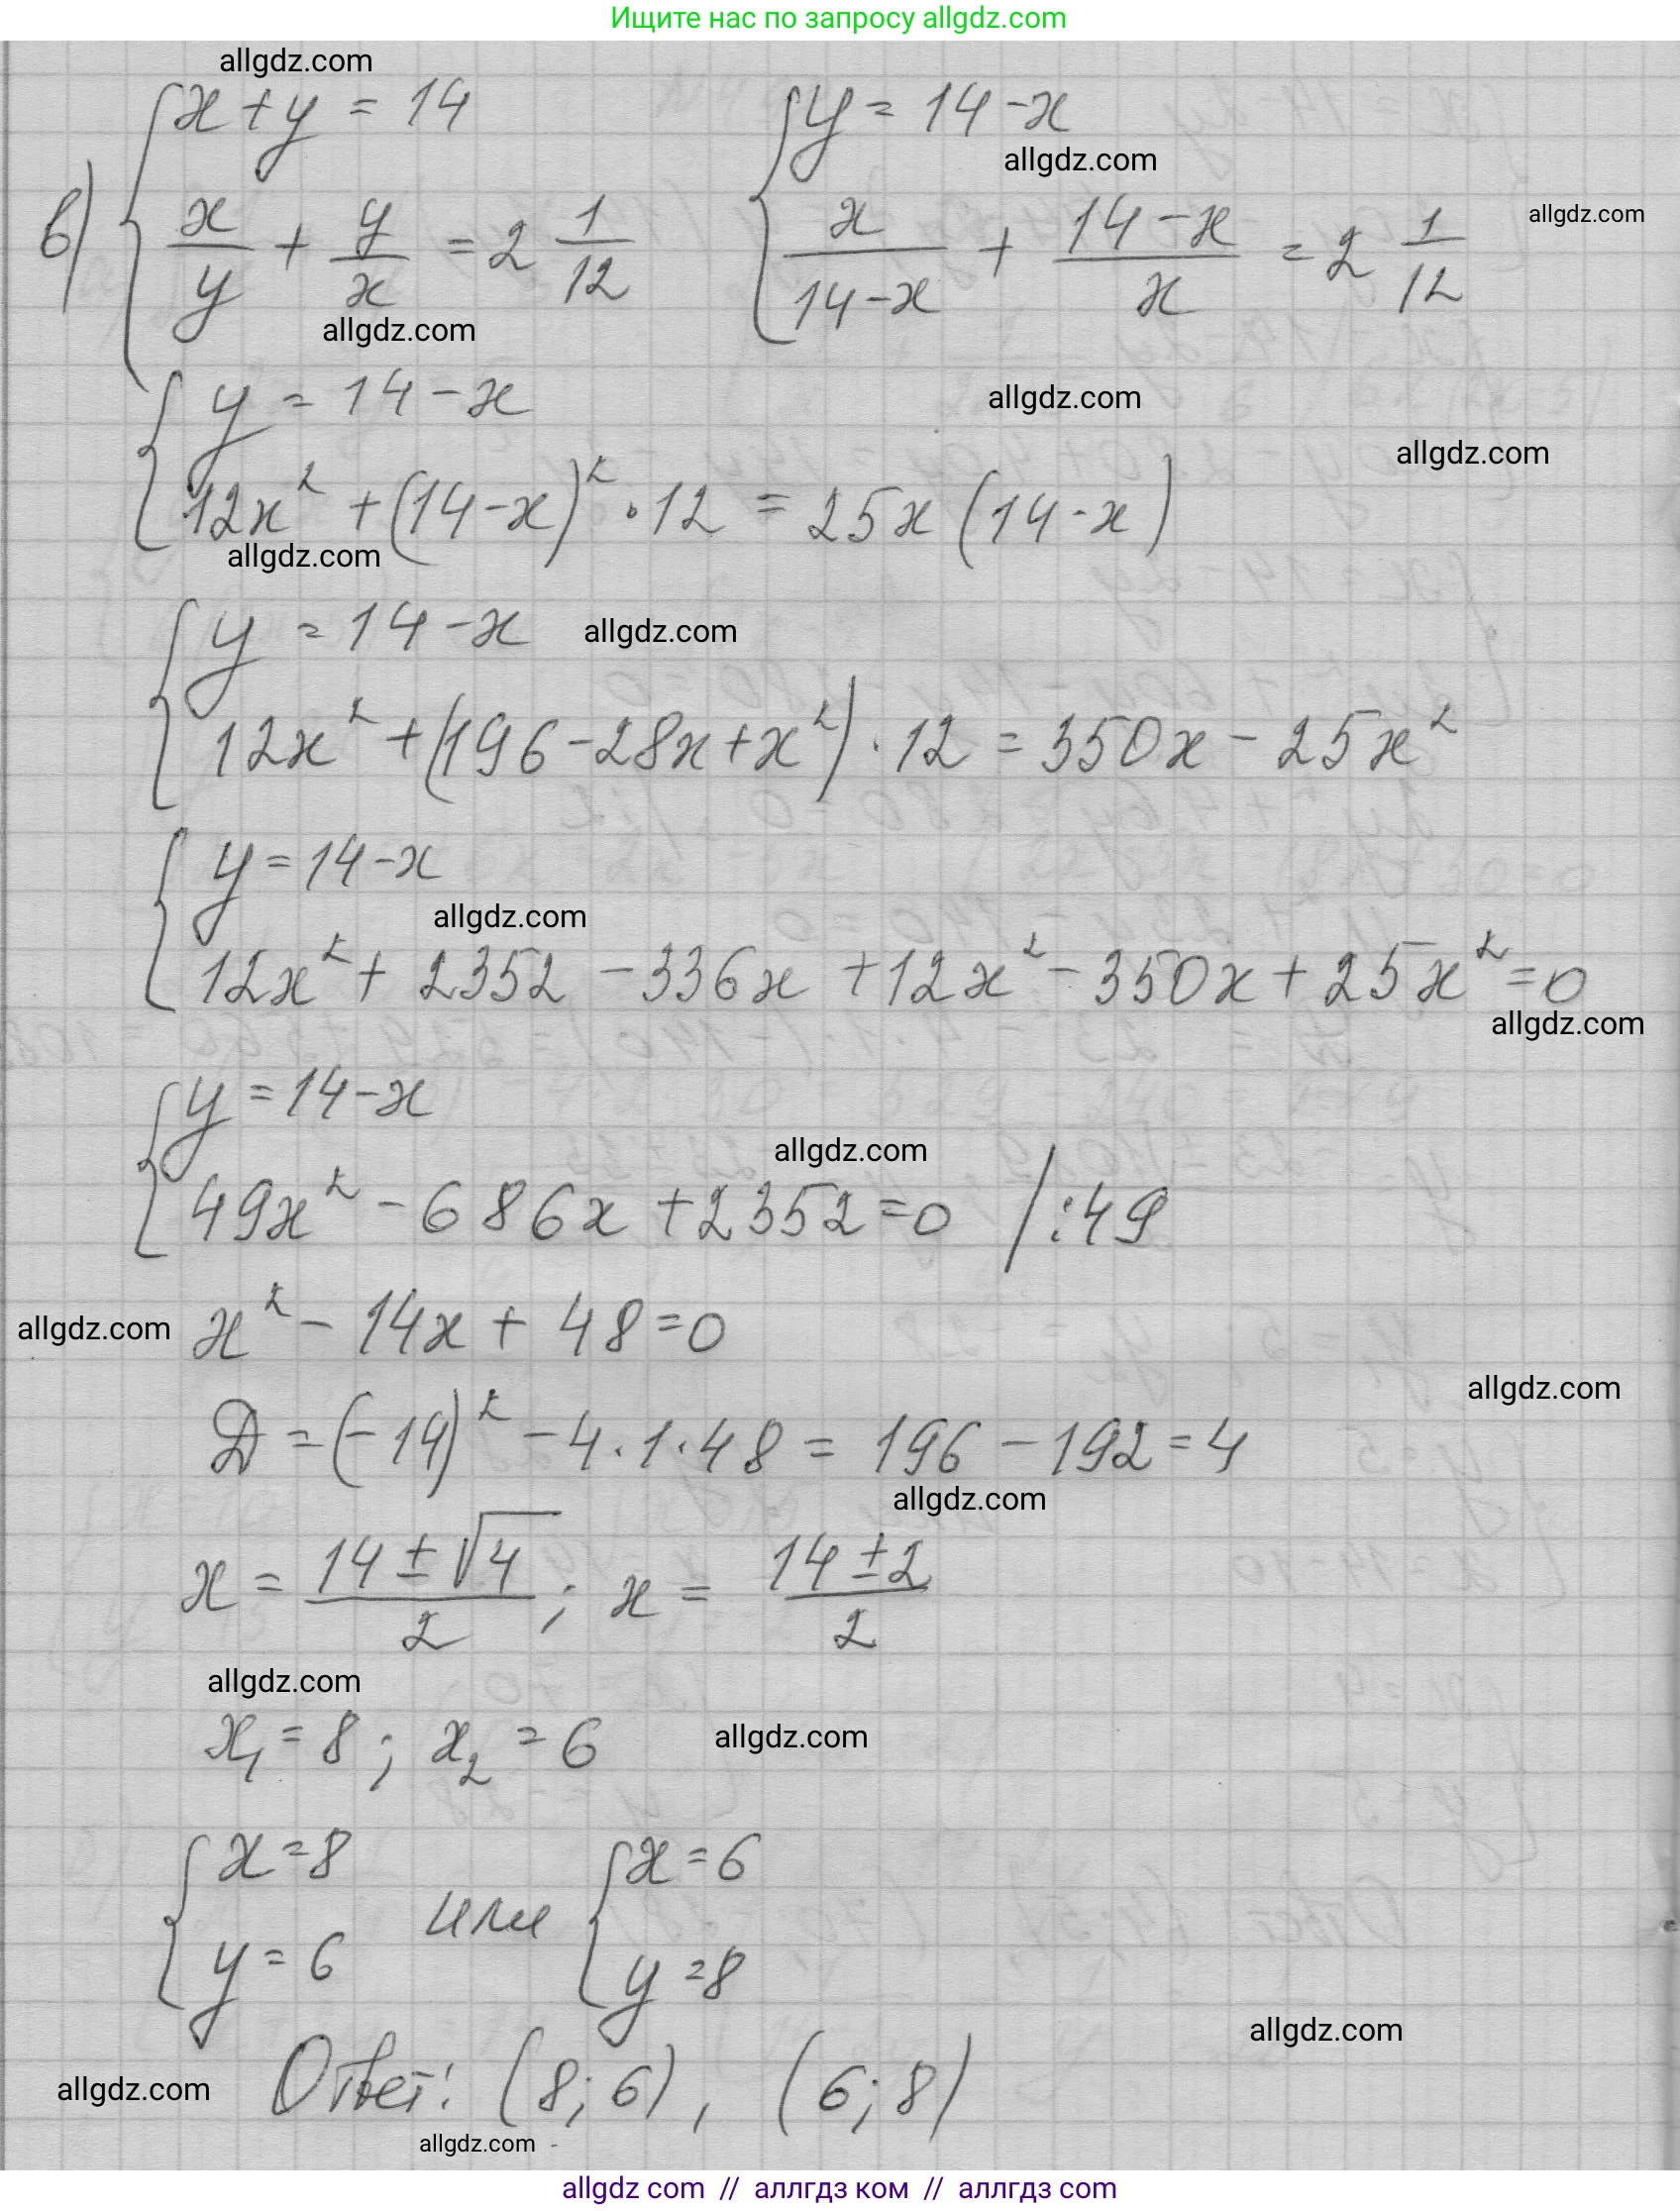 Ищите нас по запросу allgdz.com
allgdz.com
в) { x + y = 14 { y = 14 - x
allgdz.com
x/y + y/x = 2 1/12 x/(14-x) + (14-x)/x = 2 1/12
allgdz.com
allgdz.com
{ y = 14 - x
allgdz.com
allgdz.com
12x² + (14-x)² · 12 = 25x (14-x)
allgdz.com
{ y = 14 - x
allgdz.com
12x² + (196 - 28x + x²) · 12 = 350x - 25x²
{ y = 14 - x
allgdz.com
12x² + 2352 - 336x + 12x² - 350x + 25x² = 0
allgdz.com
{ y = 14 - x
allgdz.com
49x² - 686x + 2352 = 0 /:49
allgdz.com
x² - 14x + 48 = 0
allgdz.com
Д = (-14)² - 4·1·48 = 196 - 192 = 4
allgdz.com
x = (14 ± √4)/2; x = (14 ± 2)/2
allgdz.com
x₁ = 8; x₂ = 6
allgdz.com
{ x = 8 { x = 6
или
y = 6 y = 8
allgdz.com
allgdz.com
Ответ: (8; 6), (6; 8)
allgdz.com
allgdz com // аллгдз ком // allgdz com